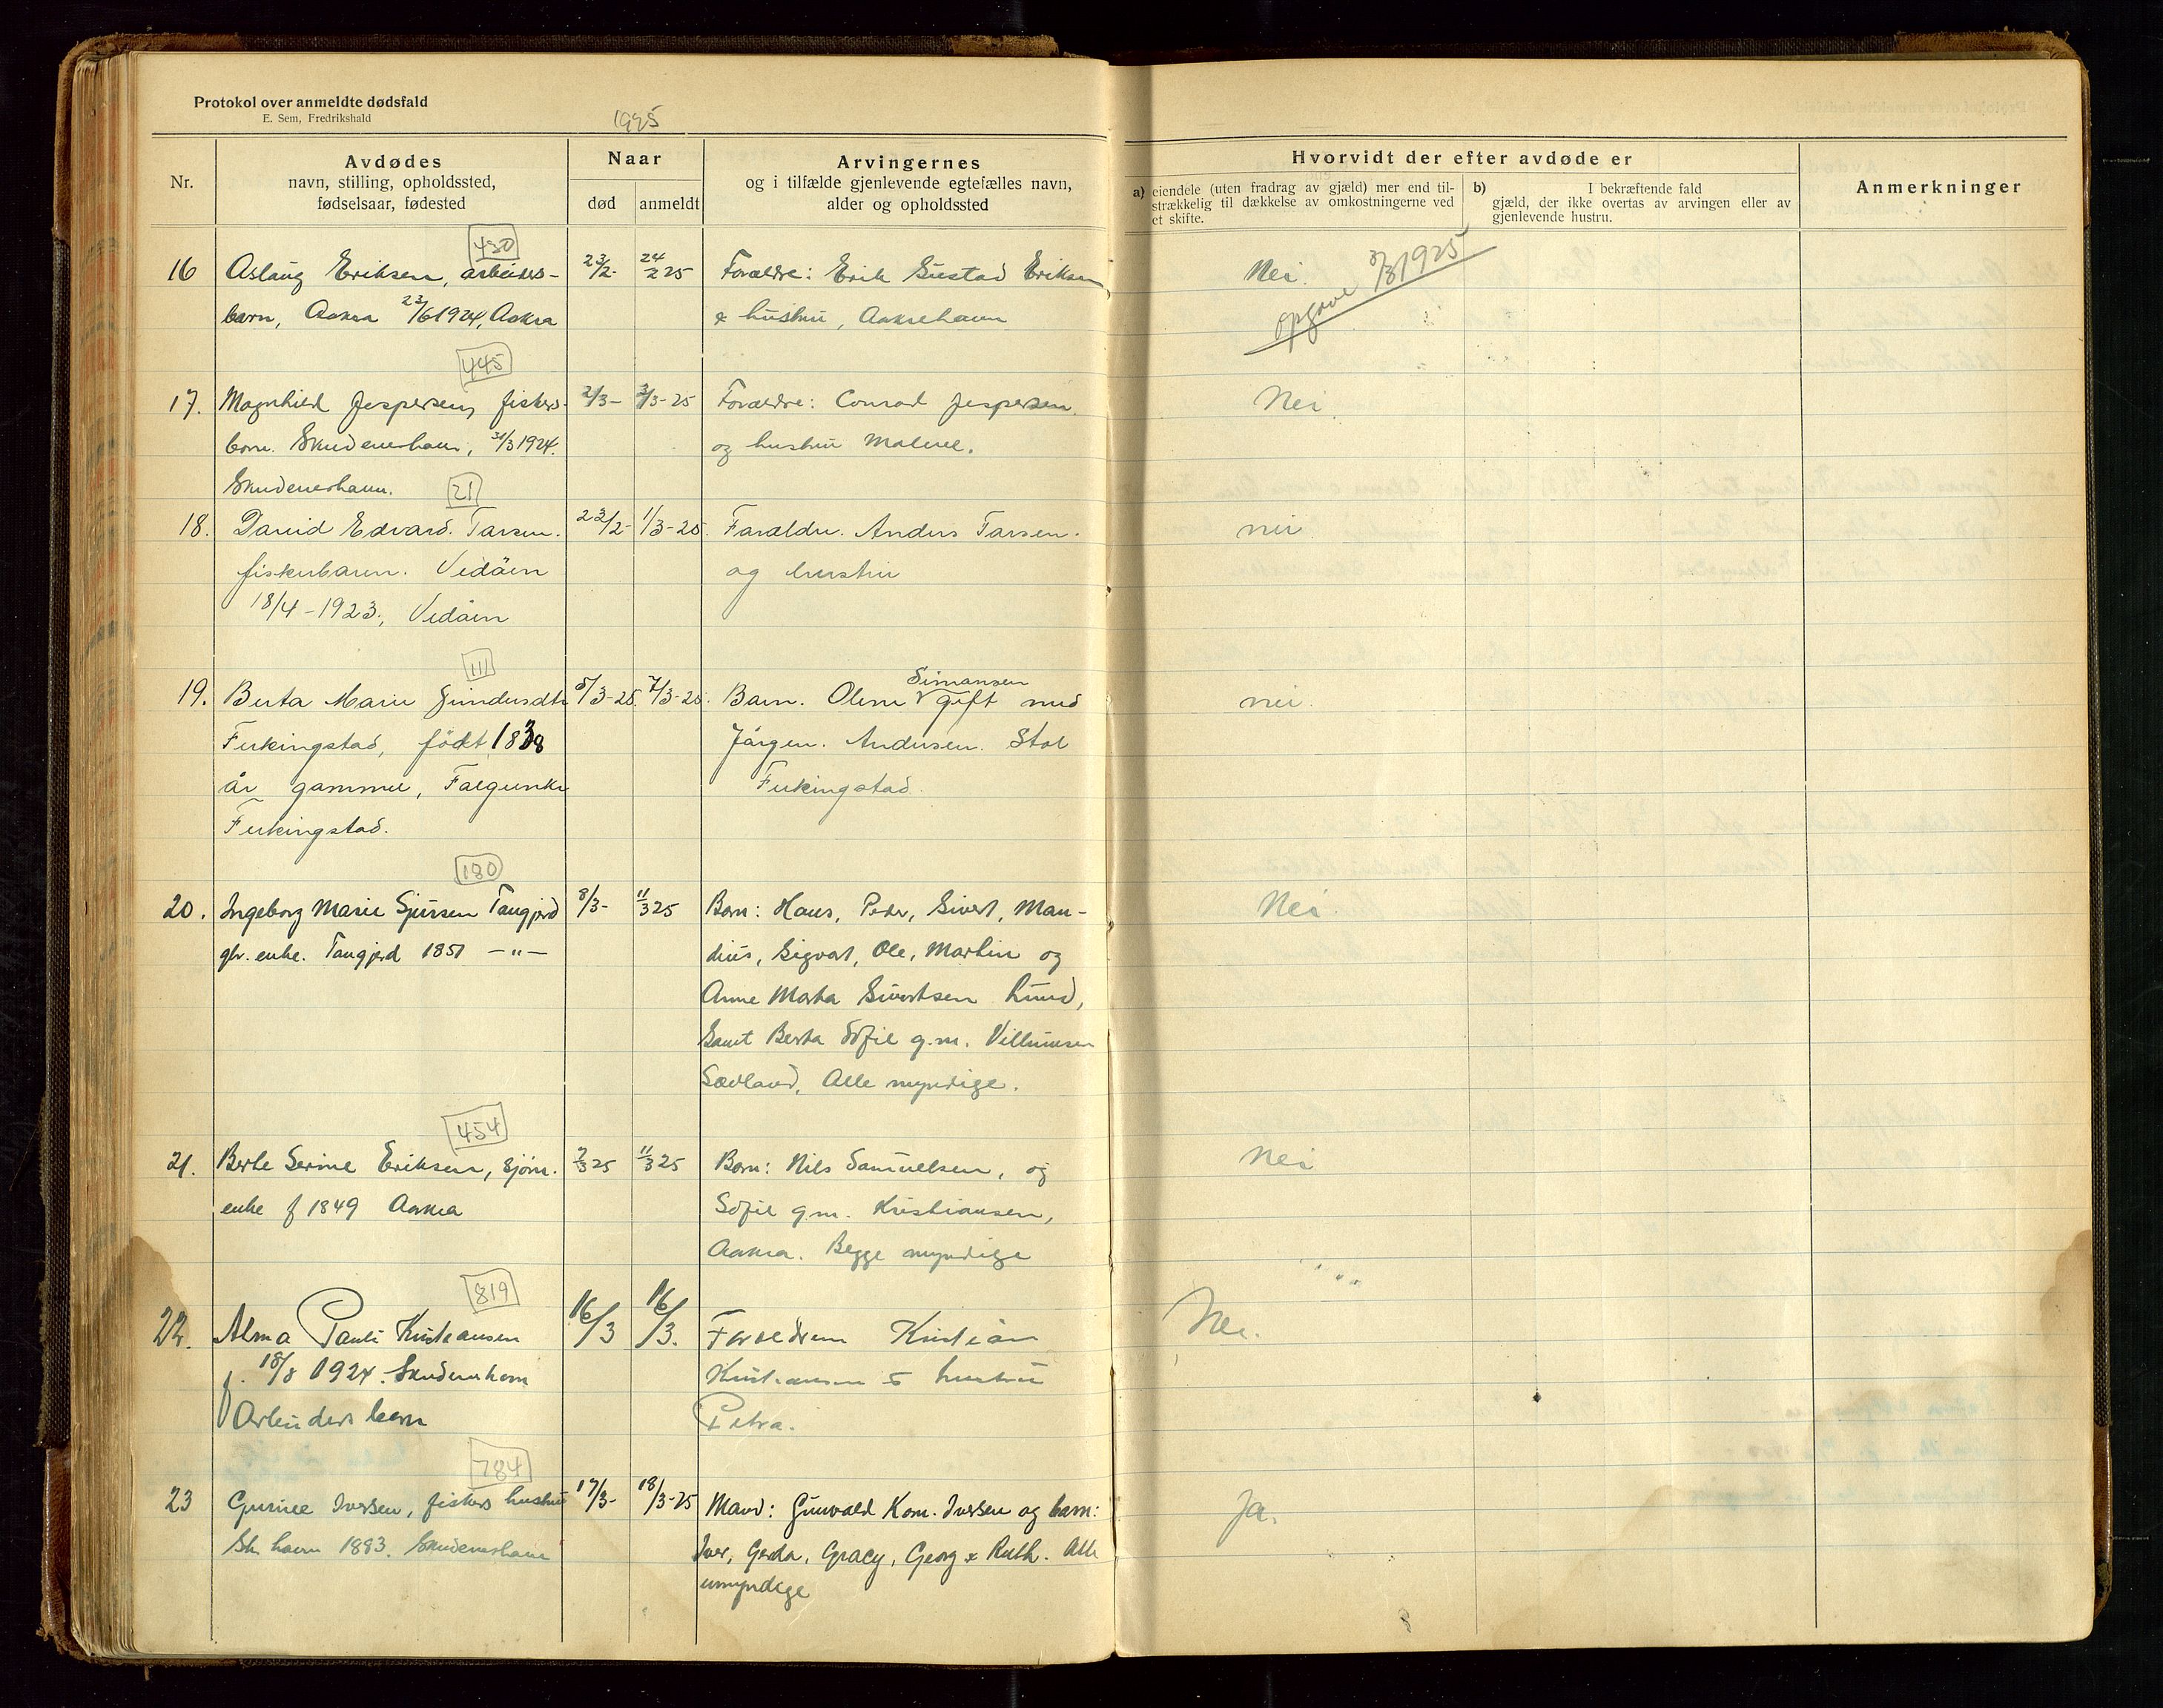 Protokol over anmeldte dødsfald
E. Sem, Fredrikshald
1925
Nr.
Avdødes
navn, stilling, opholdssted,
fødselsaar, fødested
Naar
død
anmeldt
Arvingernes
og i tilfælde gjenlevende egtefælles navn,
alder og opholdssted
Hvorvidt der efter avdøde er
a) eiendele (uten fradrag av gjæld) mer end til-
strækkelig til dækkelse av omkostningerne ved
et skifte.
b) I bekræftende fald
gjæld, der ikke overtas av arvingen eller av
gjenlevende hustru.
Anmerkninger
430
16 Aslaug Eriksen, arbeiders- 23/2- 24/2 25 Forældre: Erik Gustad Eriksen Nei. opgave 3/3 1925
barn, Aakra 23/6 1924, Aakra & hustru, Aakrehavn
445
17. Magnhild Jespersen, fiskers- 2/3- 3/3-25 Forældre: Conrad Jespersen. Nei.
barn. Skudeneshavn, 31/3 1924. og hustru Malene.
Skudeneshavn.
21
18. David Edvard. Tarsen. 23/2- 1/3-25. Forældre. Anders Tarsen. nei
fiskerbarn. Vedöen og hustru
18/4-1923, Vedöen
111
19. Berta Marie Gundersdtr 5/3-25. 7/3-25. Barn. Oline Simonsen gift med nei.
Ferkingstad, födt 1838 Jörgen. Andersen. Stol
år gammel, Ferkingstad.
Ferkingstad.
180
20. Ingeborg Marie Sjursen Tangjerd 8/3- 11/3 25 Barn: Hans, Peder, Sivert, Man- Nei.
gbr. enke. Tangjerd 1851 -"- dius, Sigvart, Ole, Martin og
Anne Marta Sivertsen Lund,
Samt Berta Sofie g.m. Villumsen
Sævland, Alle myndige.
454
21. Berte Serine Eriksen, sjöm. 7/3 25 11/3 25 Barn: Nils Samuelsen, og Nei
enke f 1849 Aakra Sofie g.m. Kristiansen,
Aakra. Begge myndige
819
22. Alma Pauli Kristiansen 16/3 16/3. Forældrene Kristian Nei.
f. 18/8 1924. Skudeneshavn Kristiansen & hustru
Arbeiders barn Petra.
784
23 Gurine Iversen, fiskers hustru 17/3- 18/3-25 Mand: Gunvald Korn. Iversen og barn: Ja.
Sk. havn 1883. Skudeneshavn Iver, Gerda, Gracy, Georg & Ruth. Alle
umyndige